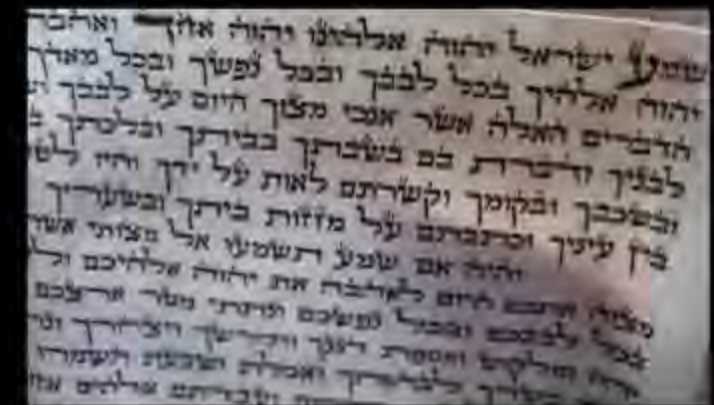 שמע ישראל יהוה אלהינו יהוה אחד ואהבת
יהוה אלהיך בכל לבבך ובכל נפשך ובכל מאדך
הדברים האלה אשר אנכי מצוך היום על לבבך
לבניך ודברת בם בשבתך בביתך ובלכתך
ובשכבך ובקומך וקשרתם לאות על ידך והיו
בין עיניך וכתבתם על מזזות ביתך ובשעריך
והיה אם שמע תשמעו אל מצותי אשר
מצוה אתכם היום לאהבה את יהוה אלהיכם
בכל לבבכם ובכל נפשכם ונתתי מטר ארצכם
יורה ומלקוש ואספת דגנך ותירשך ויצהרך
בשדך לבהמתך ואכלת ושבעת השמרו
ועבדתם אלהים